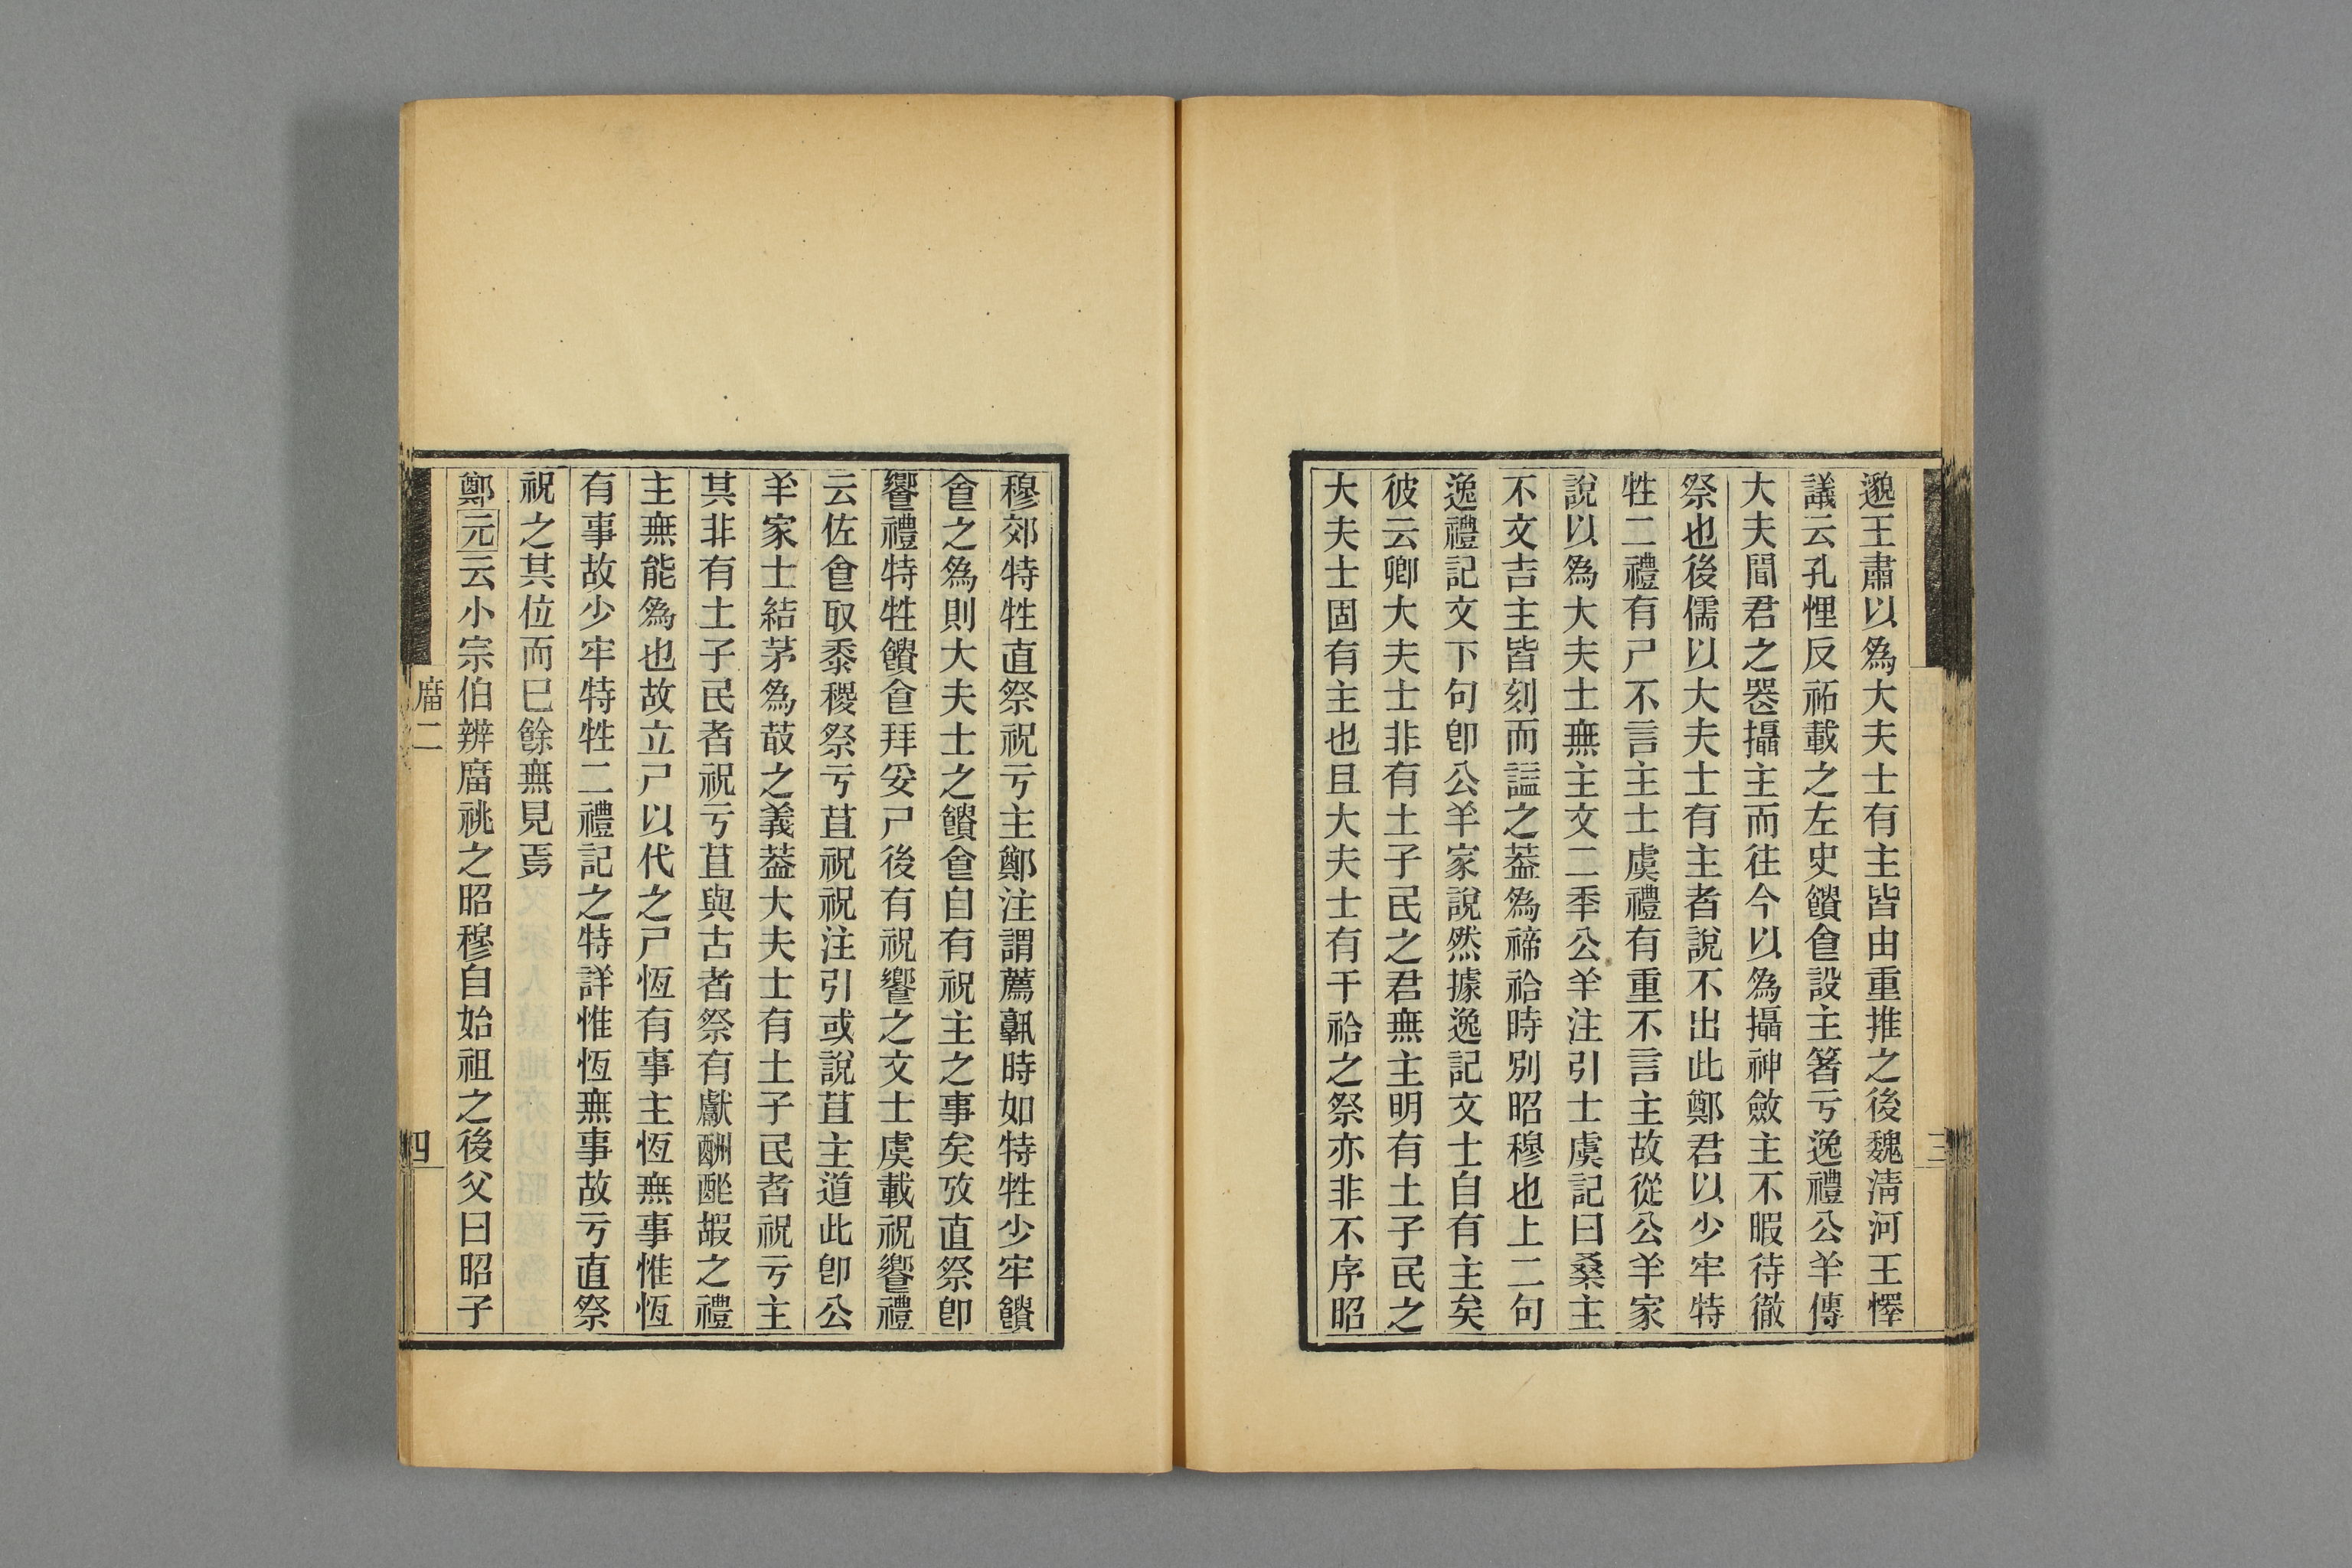 邈王肅以爲大夫士有主皆由重推之後魏淸河王懌
議云孔悝反祏載之左史饋㑹設主箸亏逸禮公羊傳
大夫聞君之喪攝主而往今以爲攝神斂主不暇待徹
祭也後儒以大夫士有主者說不出此鄭君以少牢特
牲二禮有尸不言主士虞禮有重不言主故從公羊家
說以爲大夫士無主文二季公羊注引士虞記曰桑主
不文吉主皆刻而諡之葢爲禘祫時別昭穆也上二句
逸禮記文下句卽公羊家說然據逸記文士自有主矣
彼云卿大夫士非有土子民之君無主明有土子民之
大夫士固有主也且大夫士有干祫之祭亦非不序昭
三
穆郊特牲直祭祝亏主鄭注謂薦孰時如特牲少牢饋
㑹之爲則大夫士之饋㑹自有祝主之事矣攷直祭卽
饗禮特牲饋㑹拜妥尸後有祝饗之文士虞載祝饗禮
云佐㑹取黍稷祭亏苴祝祝注引或說苴主道此卽公
羊家士結茅爲菆之義葢大夫士有土子民者祝亏主
其非有土子民者祝亏苴與古者祭有獻酬酢嘏之禮
主無能爲也故立尸以代之尸恆有事主恆無事惟恆
有事故少牢特牲二禮記之特詳惟恆無事故亏直祭
祝之其位而已餘無見焉
鄭元云小宗伯辨庿祧之昭穆自始祖之後父曰昭子
庿二
四